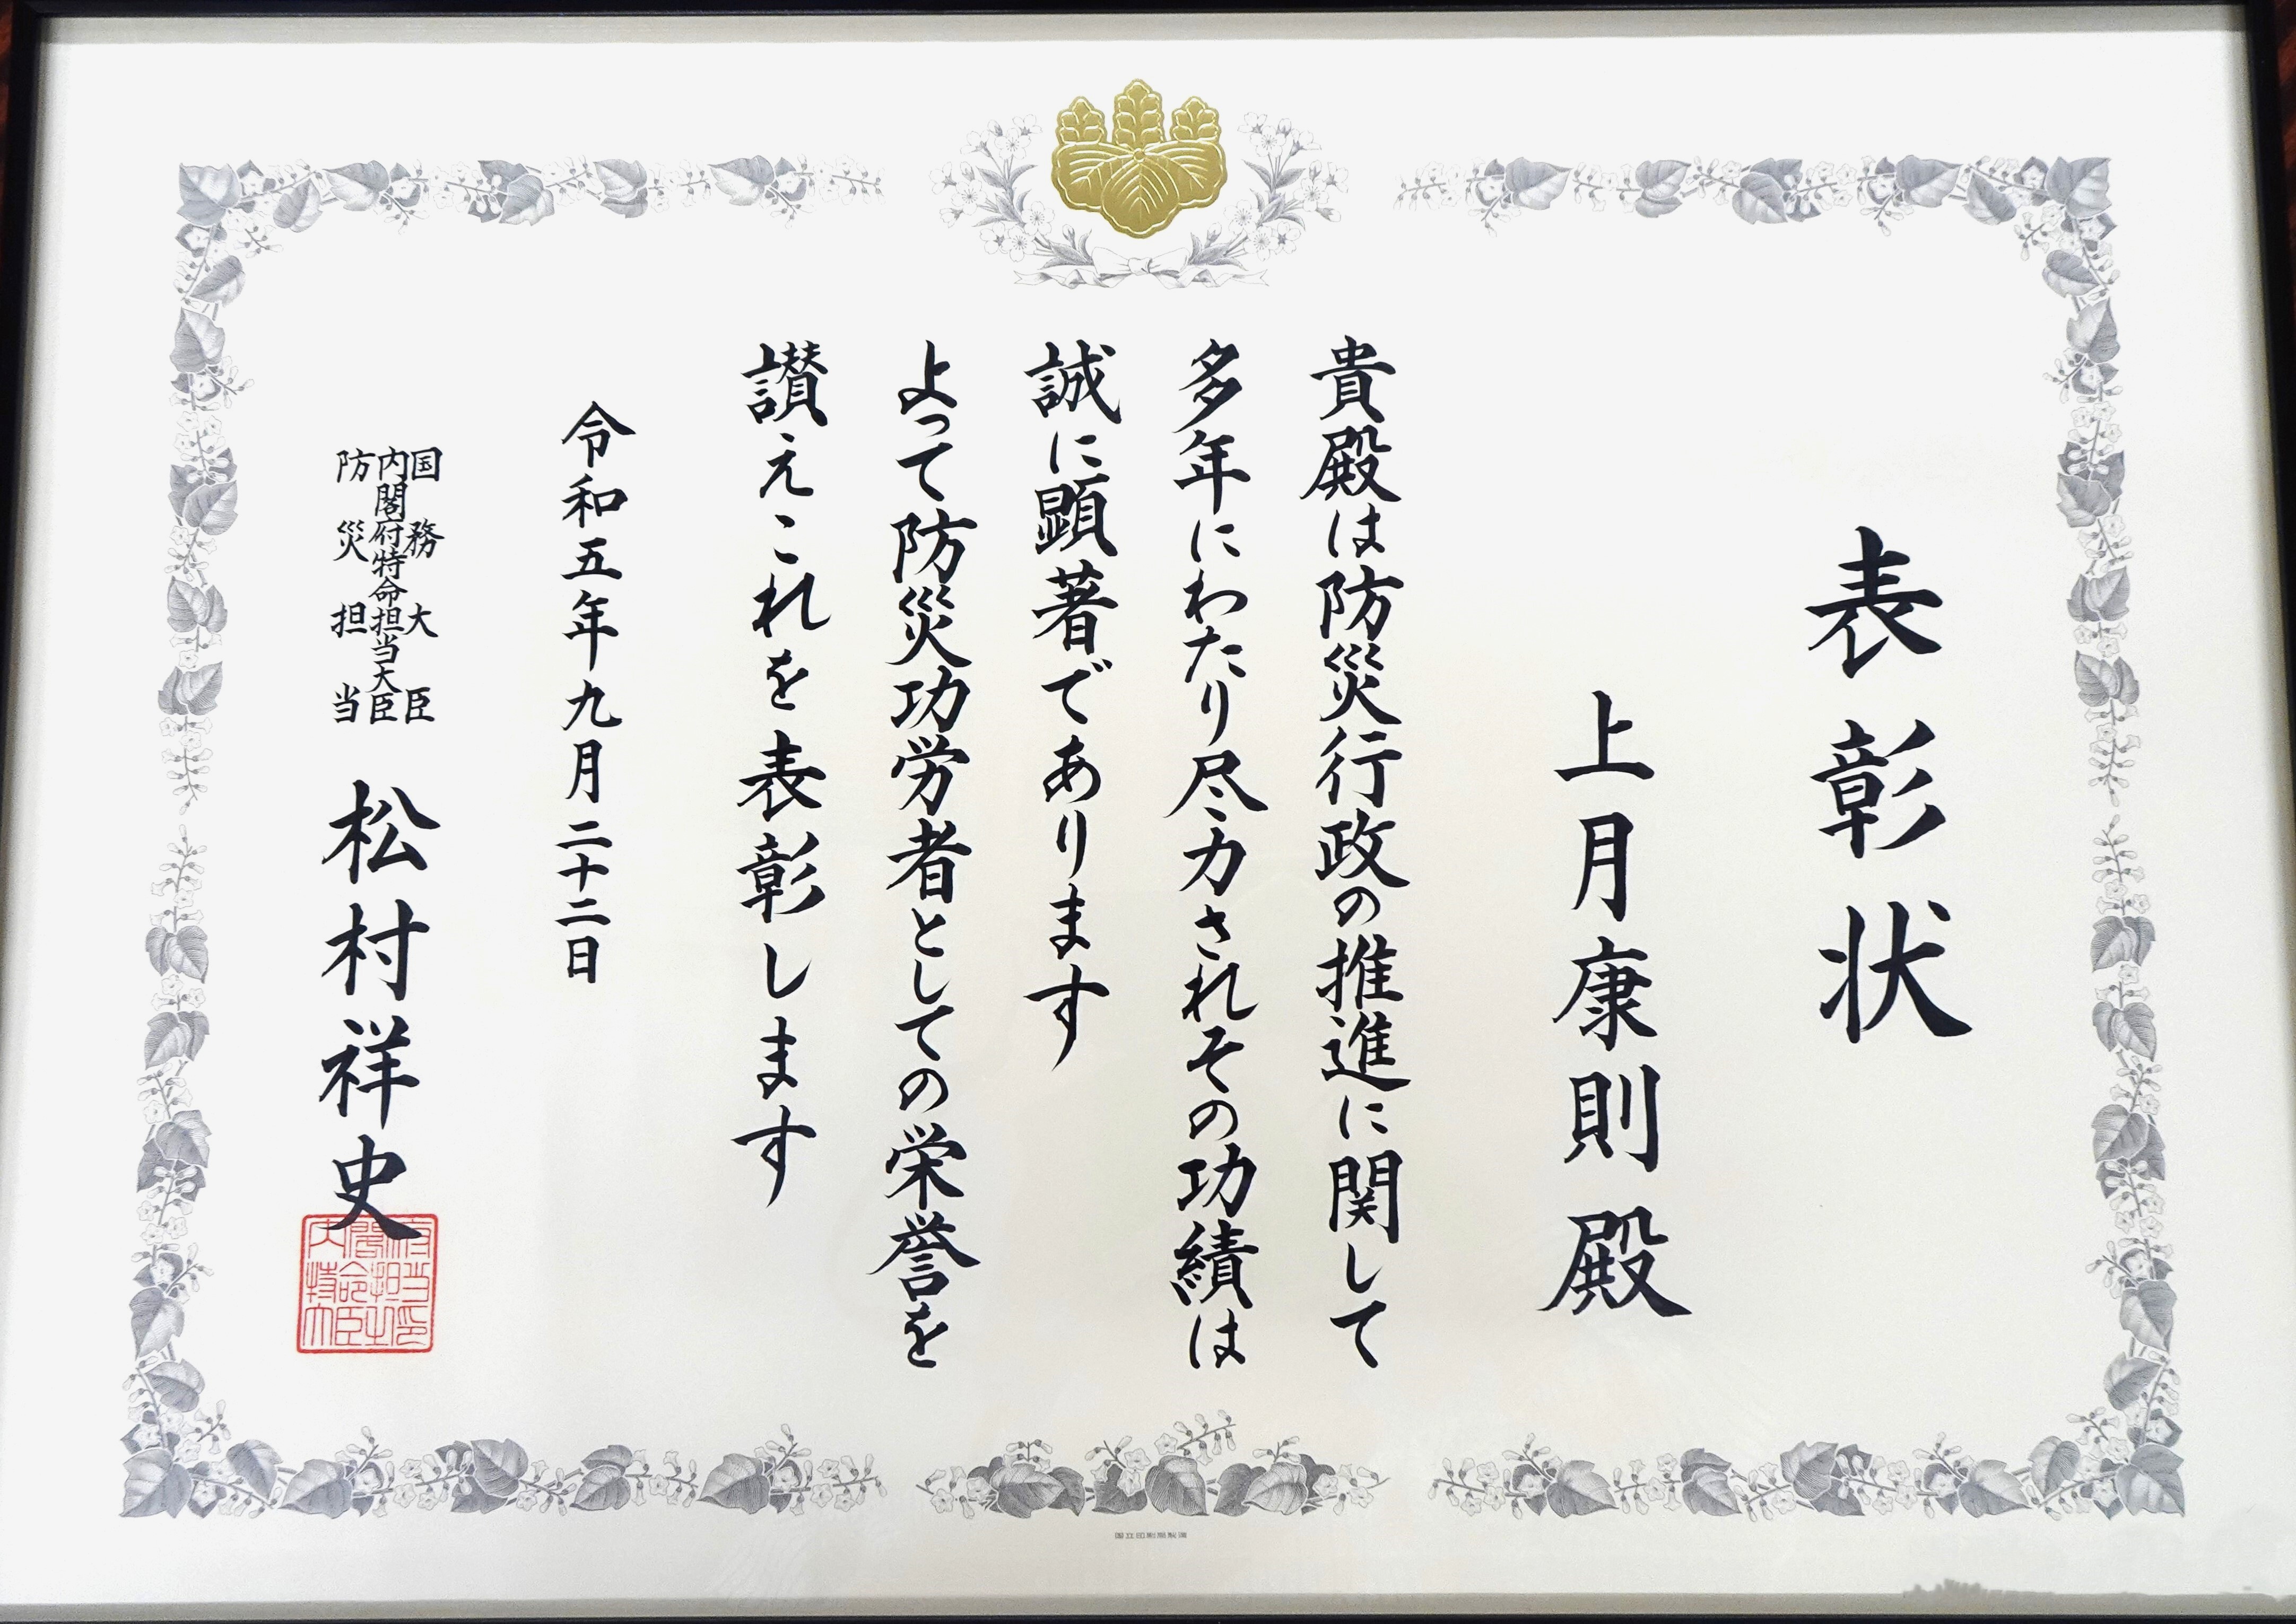 表彰状
上月康則殿
貴殿は防災行政の推進に関して
多年にわたり尽力されその功績は
誠に顕著であります
よって防災功労者としての栄誉を
讃えこれを表彰します
令和五年九月二十二日
国務大臣
内閣府特命担当大臣
防災担当
松村祥史
内閣府特命担当大臣之印
国立印刷局製造